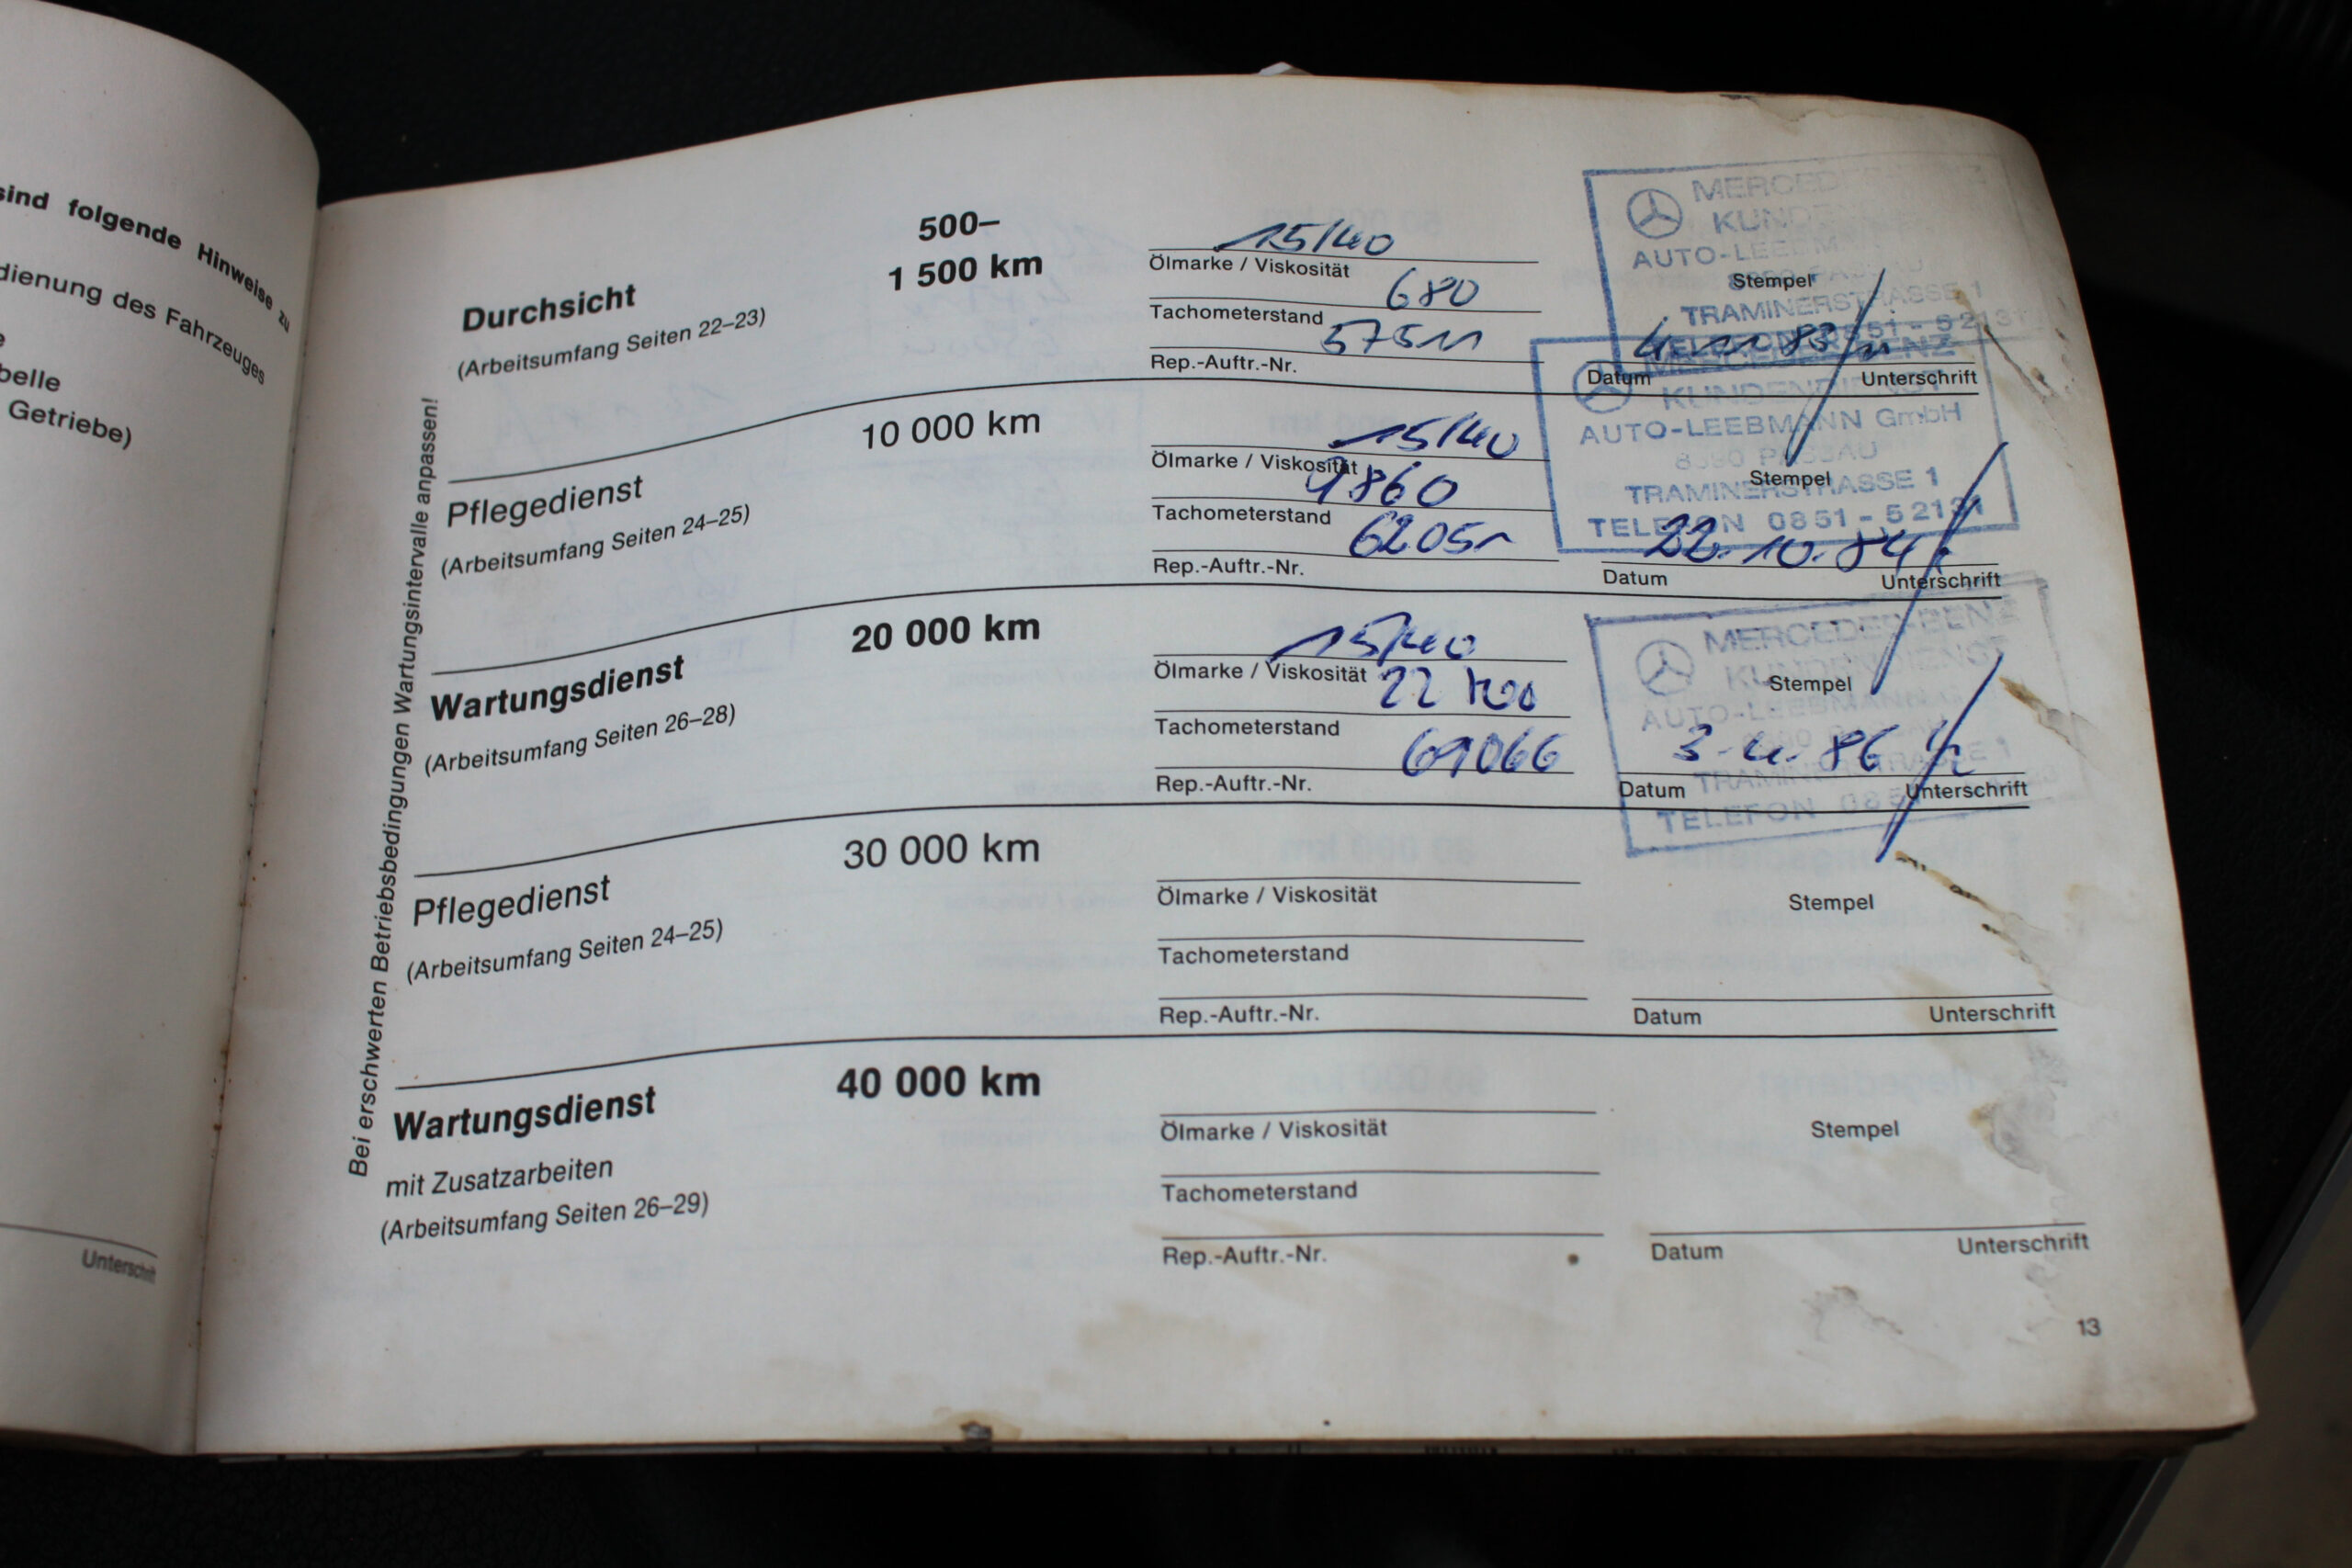 sind folgende Hinweise zu
dienung des Fahrzeuges
belle
Getriebe)
Unterschrift
Bei erschwerten Betriebsbedingungen Wartungsintervalle anpassen!
Durchsicht
(Arbeitsumfang Seiten 22–23)
500–
1 500 km
15/40
Ölmarke / Viskosität
680
Tachometerstand
57511
Rep.-Auftr.-Nr.
MERCED
KUNDEN
AUTO-LEEBM
Stempel
TRAMINERSTRASSE 1
TELEFON 0851-52131
83
Datum
Unterschrift
Pflegedienst
(Arbeitsumfang Seiten 24–25)
10 000 km
15/40
Ölmarke / Viskosität
9860
Tachometerstand
62051
Rep.-Auftr.-Nr.
MERCEDES-BENZ
KUNDENDIENST
AUTO-LEEBMANN GmbH
8390 PASSAU
Stempel
TRAMINERSTRASSE 1
TELEFON 0851-52131
22.10.84
Datum
Unterschrift
Wartungsdienst
(Arbeitsumfang Seiten 26–28)
20 000 km
15/40
Ölmarke / Viskosität
22
Tachometerstand
69066
Rep.-Auftr.-Nr.
MERCEDES-BENZ
KUNDENDIENST
Stempel
AUTO-LEEBMANN
TRAMINERSTRASSE 1
TELEFON 085
3.4.86
Datum
Unterschrift
Pflegedienst
(Arbeitsumfang Seiten 24–25)
30 000 km
Ölmarke / Viskosität
Tachometerstand
Rep.-Auftr.-Nr.
Stempel
Datum
Unterschrift
Wartungsdienst
mit Zusatzarbeiten
(Arbeitsumfang Seiten 26–29)
40 000 km
Ölmarke / Viskosität
Tachometerstand
Rep.-Auftr.-Nr.
Stempel
Datum
Unterschrift
13